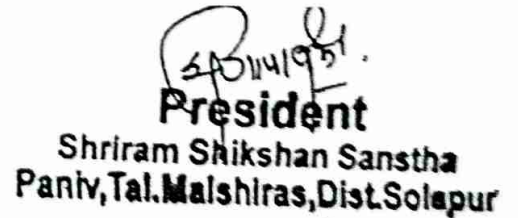 President
Shriram Shikshan Sanstha
Paniv,Tal.Malshiras,Dist.Solapur